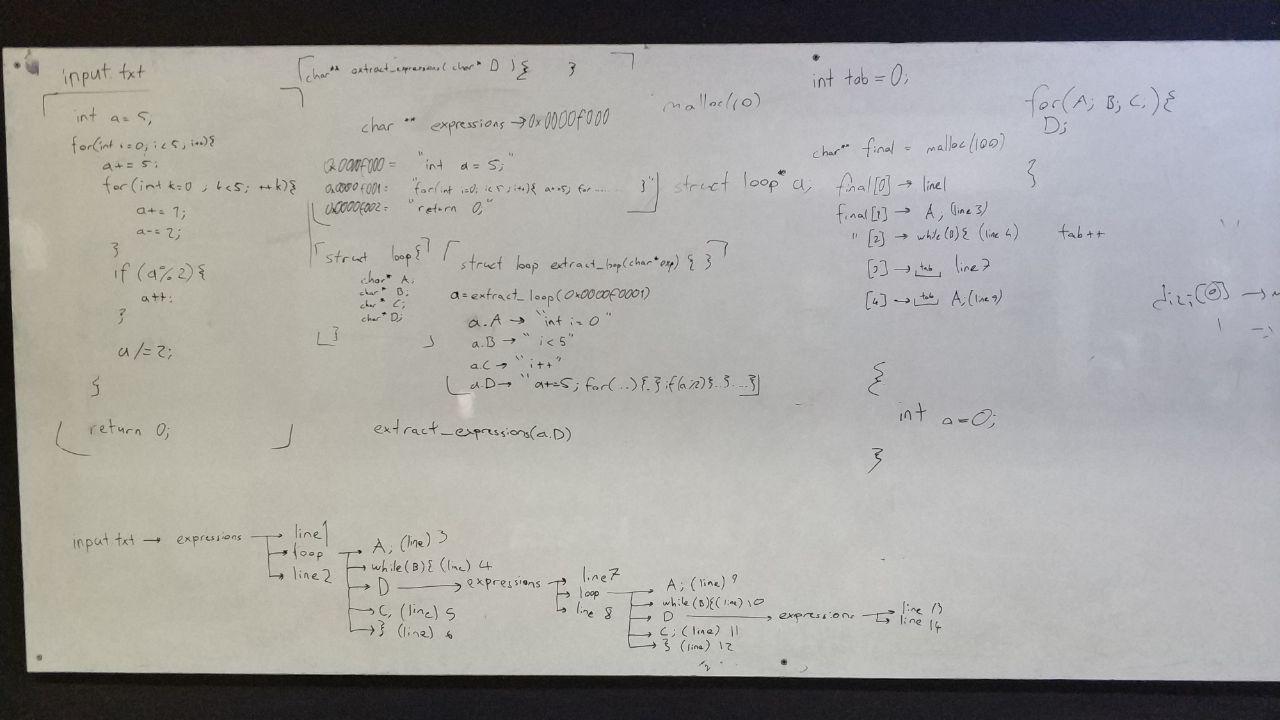 input.txt
int a = 5;
for(int i=0; i<5; i++){
a+=5;
for(int k=0; k<5; ++k){
a+=1;
a-=2;
}
if (a%2){
a++;
}
a/=2;
}
return 0;
char** extract_expressions(char* D){ }
char ** expressions → 0x0000f000
malloc(10)
0x0000f000 = "int a = 5;"
0x0000f001: "for(int i=0; i<5; i++){ a+=5; for ...... }"
0x0000f002: "return 0;"
struct loop* a;
struct loop{
char* A;
char* B;
char* C;
char* D;
}
struct loop extract_loop(char* exp) { }
a=extract_loop(0x0000f0001)
a.A → "int i=0"
a.B → "i<5"
a.C → "i++"
a.D → "a+=5; for(...){.} if(a%2){..}...}
extract_expressions(a.D)
int tab = 0;
char** final = malloc(100)
final[0] → line1
final[1] → A; (line 3)
" [2] → while(B){ (line 4) tab++
[3] → tab line 7
[4] → tab A;(line 9)
for(A; B; C;){
D;
}
dizi[0] →
{
int a=0;
}
input.txt → expressions → line1
→ loop → A; (line) 3
→ line 2 → while(B){ (line) 4
→ D → expressions → line7
→ C; (line) 5 → loop → A; (line) 9
→ } (line) 6 → line 8 → while(B){(line) 10
→ D → expressions → line 13
→ line 14
→ C; (line) 11
→ } (line) 12